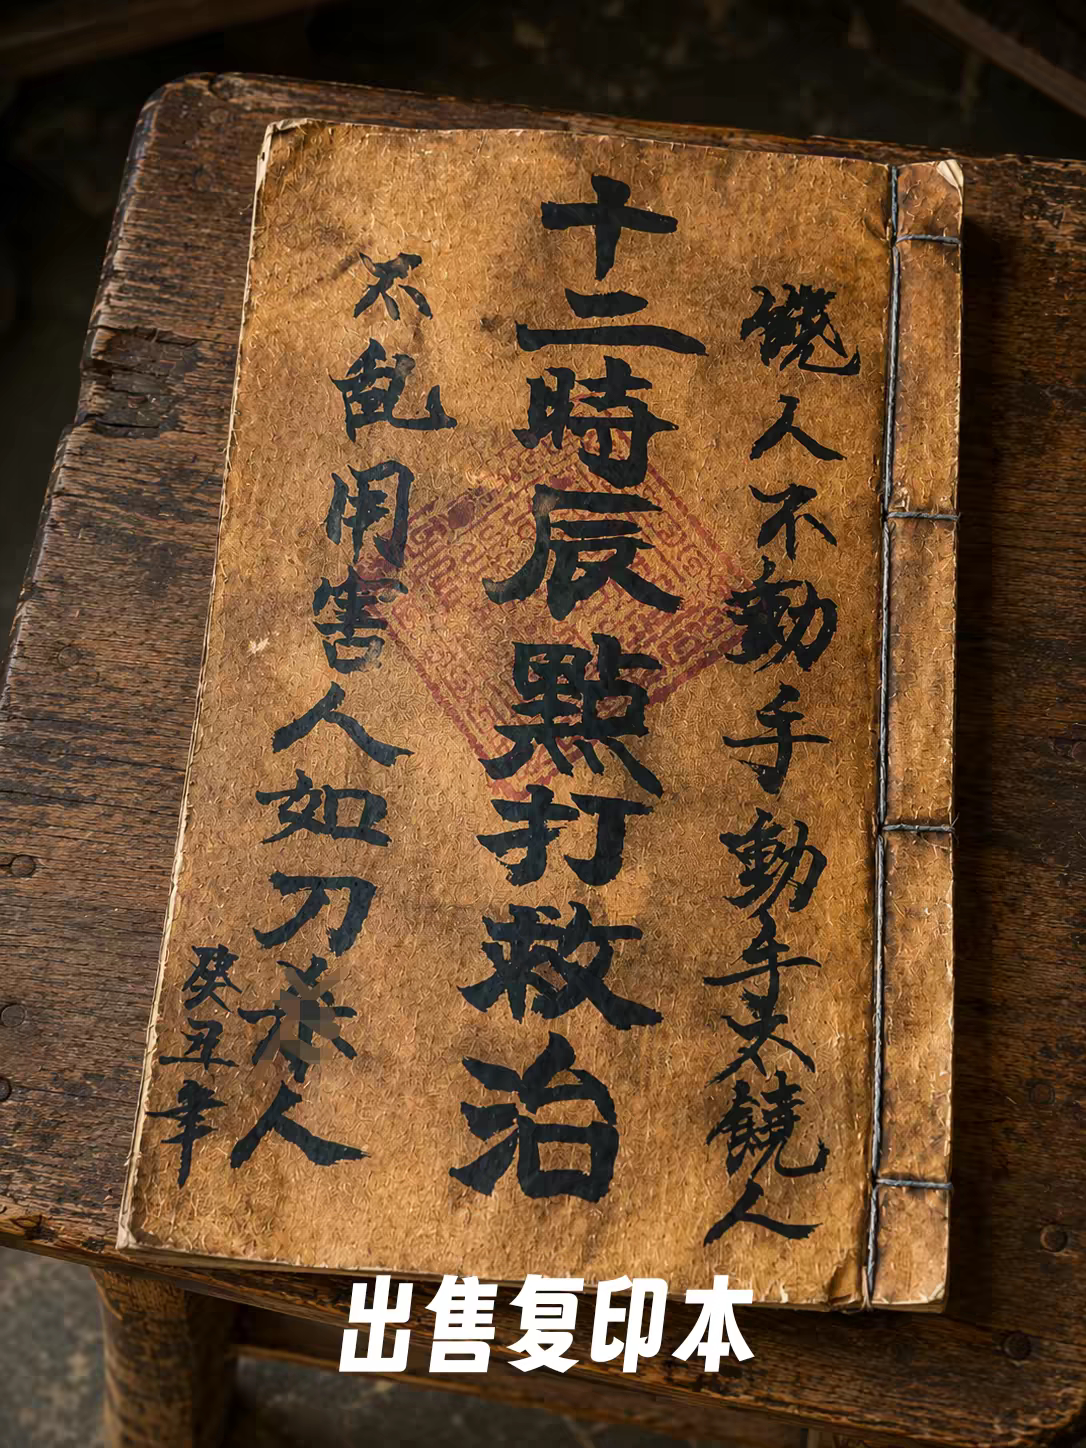 饒人不動手動手不饒人
十二時辰點打救治
不乱用害人如刀人
癸丑年
出售复印本